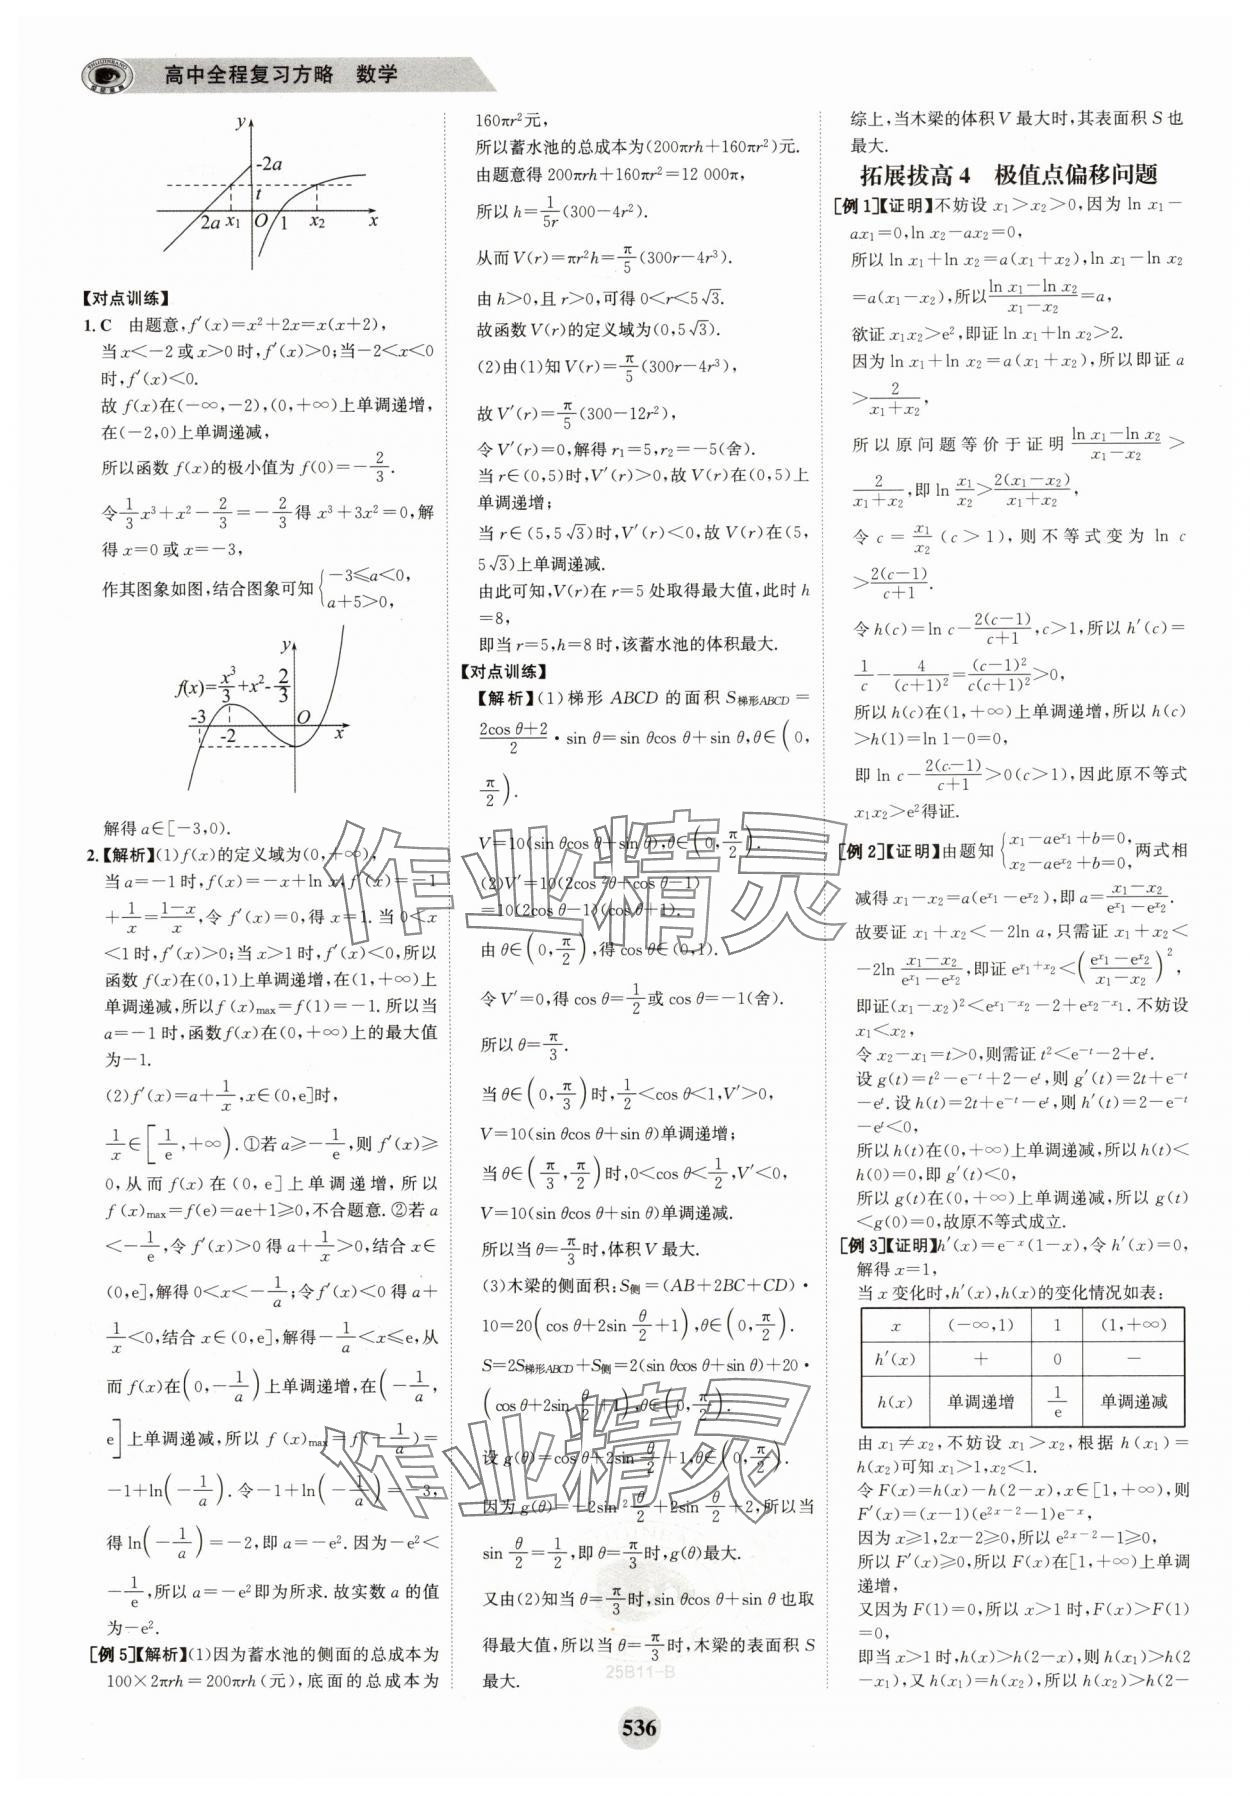 高中全程复习方略 数学
y
-2a
t
2a x₁ O 1 x₂ x
【对点训练】
1.C 由题意,f′(x)=x²+2x=x(x+2),
当x<-2或x>0时,f′(x)>0;当-2<x<0
时,f′(x)<0.
故f(x)在(-∞,-2),(0,+∞)上单调递增,
在(-2,0)上单调递减,
所以函数f(x)的极小值为f(0)=-2/3.
令1/3x³+x²-2/3=-2/3得x³+3x²=0,解
得x=0或x=-3,
作其图象如图,结合图象可知{-3≤a<0,
a+5>0,
y
f(x)=x³/3+x²-2/3
-3 -2 O x
解得a∈[-3,0).
2.【解析】(1)f(x)的定义域为(0,+∞),
当a=-1时,f(x)=-x+ln x,f′(x)=-1
+1/x=(1-x)/x,令f′(x)=0,得x=1.当0<x
<1时,f′(x)>0;当x>1时,f′(x)<0,所以
函数f(x)在(0,1)上单调递增,在(1,+∞)上
单调递减,所以f(x)max=f(1)=-1.所以当
a=-1时,函数f(x)在(0,+∞)上的最大值
为-1.
(2)f′(x)=a+1/x,x∈(0,e]时,
1/x∈[1/e,+∞).①若a≥-1/e,则f′(x)≥
0,从而f(x)在(0,e]上单调递增,所以
f(x)max=f(e)=ae+1≥0,不合题意.②若a
<-1/e,令f′(x)>0得a+1/x>0,结合x∈
(0,e],解得0<x<-1/a;令f′(x)<0得a+
1/x<0,结合x∈(0,e],解得-1/a<x≤e,从
而f(x)在(0,-1/a)上单调递增,在(-1/a,
e]上单调递减,所以f(x)max=f(-1/a)=
-1+ln(-1/a).令-1+ln(-1/a)=-3,
得ln(-1/a)=-2,即a=-e².因为-e²<
-1/e,所以a=-e²即为所求.故实数a的值
为-e².
[例5]【解析】(1)因为蓄水池的侧面的总成本为
100×2πrh=200πrh(元),底面的总成本为
160πr²元,
所以蓄水池的总成本为(200πrh+160πr²)元.
由题意得200πrh+160πr²=12 000π,
所以h=1/5r(300-4r²).
从而V(r)=πr²h=π/5(300r-4r³).
由h>0,且r>0,可得0<r<5√3.
故函数V(r)的定义域为(0,5√3).
(2)由(1)知V(r)=π/5(300r-4r³),
故V′(r)=π/5(300-12r²),
令V′(r)=0,解得r₁=5,r₂=-5(舍).
当r∈(0,5)时,V′(r)>0,故V(r)在(0,5)上
单调递增;
当r∈(5,5√3)时,V′(r)<0,故V(r)在(5,
5√3)上单调递减.
由此可知,V(r)在r=5处取得最大值,此时h
=8,
即当r=5,h=8时,该蓄水池的体积最大.
【对点训练】
【解析】(1)梯形ABCD的面积S梯形ABCD=
(2cos θ+2)/2·sin θ=sin θcos θ+sin θ,θ∈(0,
π/2).
V=10(sin θcos θ+sin θ),θ∈(0,π/2).
(2)V′=10(2cos²θ+cos θ-1)
=10(2cos θ-1)(cos θ+1).
由θ∈(0,π/2),得cos θ∈(0,1).
令V′=0,得cos θ=1/2或cos θ=-1(舍).
所以θ=π/3.
当θ∈(0,π/3)时,1/2<cos θ<1,V′>0,
V=10(sin θcos θ+sin θ)单调递增;
当θ∈(π/3,π/2)时,0<cos θ<1/2,V′<0,
V=10(sin θcos θ+sin θ)单调递减.
所以当θ=π/3时,体积V最大.
(3)木梁的侧面积:S侧=(AB+2BC+CD)·
10=20(cos θ+2sin θ/2+1),θ∈(0,π/2).
S=2S梯形ABCD+S侧=2(sin θcos θ+sin θ)+20·
(cos θ+2sin θ/2+1),θ∈(0,π/2).
设g(θ)=cos θ+2sin θ/2+1,θ∈(0,π/2).
因为g(θ)=-2sin² θ/2+2sin θ/2+2,所以当
sin θ/2=1/2,即θ=π/3时,g(θ)最大.
又由(2)知当θ=π/3时,sin θcos θ+sin θ也取
得最大值,所以当θ=π/3时,木梁的表面积S
最大.
综上,当木梁的体积V最大时,其表面积S也
最大.
拓展拔高4 极值点偏移问题
[例1]【证明】不妨设x₁>x₂>0,因为ln x₁-
ax₁=0,ln x₂-ax₂=0,
所以ln x₁+ln x₂=a(x₁+x₂),ln x₁-ln x₂
=a(x₁-x₂),所以(ln x₁-ln x₂)/(x₁-x₂)=a,
欲证x₁x₂>e²,即证ln x₁+ln x₂>2.
因为ln x₁+ln x₂=a(x₁+x₂),所以即证a
>2/(x₁+x₂),
所以原问题等价于证明(ln x₁-ln x₂)/(x₁-x₂)>
2/(x₁+x₂),即ln x₁/x₂>2(x₁-x₂)/(x₁+x₂),
令c=x₁/x₂(c>1),则不等式变为ln c
>2(c-1)/(c+1).
令h(c)=ln c-2(c-1)/(c+1),c>1,所以h′(c)=
1/c-4/(c+1)²=(c-1)²/c(c+1)²>0,
所以h(c)在(1,+∞)上单调递增,所以h(c)
>h(1)=ln 1-0=0,
即ln c-2(c-1)/(c+1)>0(c>1),因此原不等式
x₁x₂>e²得证.
[例2]【证明】由题知{x₁-ae^x₁+b=0,
x₂-ae^x₂+b=0,两式相
减得x₁-x₂=a(e^x₁-e^x₂),即a=(x₁-x₂)/(e^x₁-e^x₂).
故要证x₁+x₂<-2ln a,只需证x₁+x₂<
-2ln (x₁-x₂)/(e^x₁-e^x₂),即证e^(x₁+x₂)<((e^x₁-e^x₂)/(x₁-x₂))²,
即证(x₁-x₂)²<e^(x₁-x₂)-2+e^(x₂-x₁).不妨设
x₁<x₂,
令x₂-x₁=t>0,则需证t²<e^(-t)-2+e^t.
设g(t)=t²-e^(-t)+2-e^t,则g′(t)=2t+e^(-t)
-e^t.设h(t)=2t+e^(-t)-e^t,则h′(t)=2-e^(-t)
-e^t<0,
所以h(t)在(0,+∞)上单调递减,所以h(t)<
h(0)=0,即g′(t)<0,
所以g(t)在(0,+∞)上单调递减,所以g(t)
<g(0)=0,故原不等式成立.
[例3]【证明】h′(x)=e^(-x)(1-x),令h′(x)=0,
解得x=1,
当x变化时,h′(x),h(x)的变化情况如表:
x (-∞,1) 1 (1,+∞)
h′(x) + 0 -
h(x) 单调递增 1/e 单调递减
由x₁≠x₂,不妨设x₁>x₂,根据h(x₁)=
h(x₂)可知x₁>1,x₂<1.
令F(x)=h(x)-h(2-x),x∈[1,+∞),则
F′(x)=(x-1)(e^(2x-2)-1)e^(-x),
因为x≥1,2x-2≥0,所以e^(2x-2)-1≥0,
所以F′(x)≥0,所以F(x)在[1,+∞)上单调
递增,
又因为F(1)=0,所以x>1时,F(x)>F(1)
=0,
即当x>1时,h(x)>h(2-x),则h(x₁)>h(2
-x₁),又h(x₁)=h(x₂),所以h(x₂)>h(2-
25B11-B
536
作业精灵
作业精灵